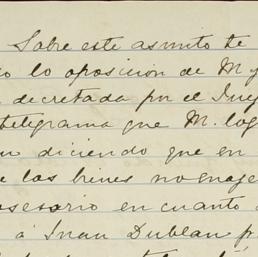 Sobre este asunto te
lo oposición de M y
decretada por el Juez
telegrama que M. log
diciendo que en
las bienes no enage
asesorio en cuanto
á Juan Dublan p